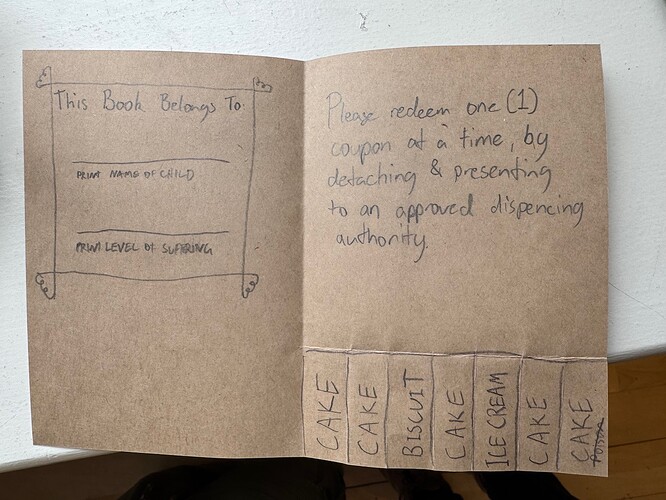 This Book Belongs To:
PRINT NAME OF CHILD
PRINT LEVEL OF SUFFERING
Please redeem one (1)
coupon at a time, by
detaching & presenting
to an approved dispencing
authority.
CAKE
CAKE
BISCUIT
CAKE
ICE CREAM
CAKE
CAKE
Poison